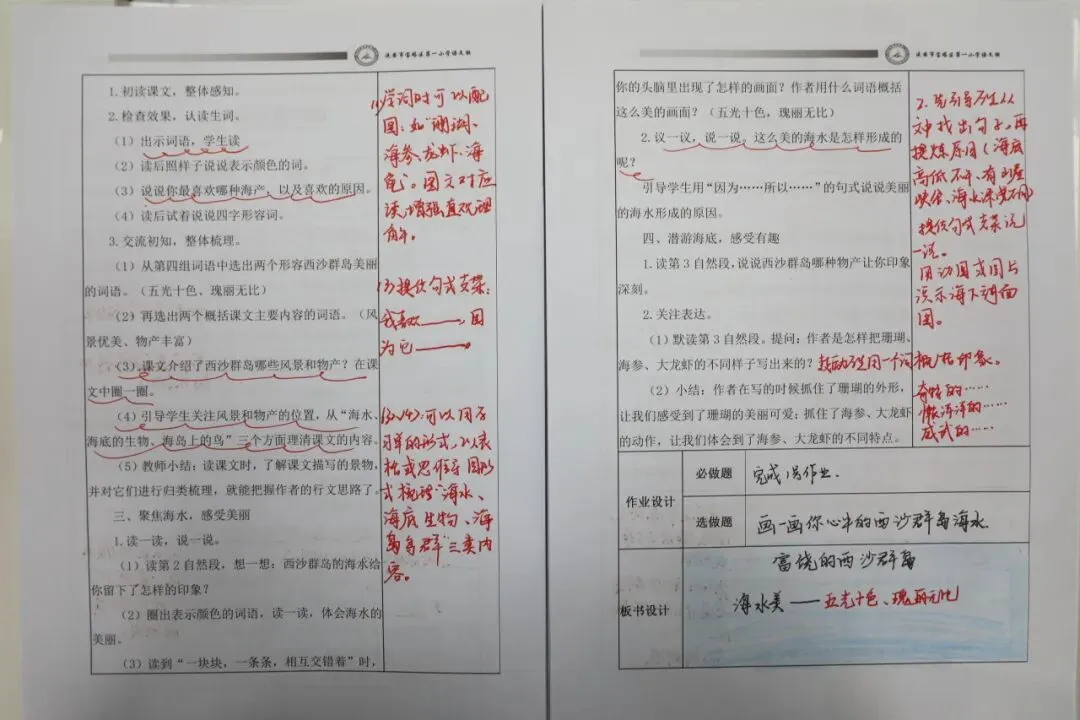 延安市宝塔区第一小学语文组
1.初读课文，整体感知。
2.检查效果，认读生词。
（1）出示词语，学生读
（2）读后照样子说说表示颜色的词。
（3）说说你最喜欢哪种海产，以及喜欢的原因。
（4）读后试着说说四字形容词。
3.交流初知，整体梳理。
（1）从第四组词语中选出两个形容西沙群岛美丽
的词语。（五光十色、瑰丽无比）
（2）再选出两个概括课文主要内容的词语。（风
景优美、物产丰富）
（3）课文介绍了西沙群岛哪些风景和物产？在课
文中圈一圈。
（4）引导学生关注风景和物产的位置，从“海水、
海底的生物、海岛上的鸟”三个方面理清课文的内容。
（5）教师小结：读课文时，了解课文描写的景物，
并对它们进行归类梳理，就能把握作者的行文思路了。
三、聚焦海水，感受美丽
1.读一读，说一说。
（1）读第2自然段，想一想：西沙群岛的海水给
你留下了怎样的印象？
（2）圈出表示颜色的词语，读一读，体会海水的
美丽。
（3）读到“一块块，一条条，相互交错着”时，
(1)学词时可以配
图：如“珊瑚、
海参、龙虾、海
龟”。图文对应
读，增强直观理
有年。
(3)提供句式支架：
我喜欢——，因
为它——
(3)、(4)：可以用
的形式，以表
格或思维导图形
式梳理“海水、
海底生物、海
岛鸟群”三类内
容。
延安市宝塔区第一小学语文组
你的头脑里出现了怎样的画面？作者用什么词语概括
这么美的画面？（五光十色，瑰丽无比）
2.议一议，说一说。这么美的海水是怎样形成的
呢？
引导学生用“因为……所以……”的句式说说美丽
的海水形成的原因。
四、潜游海底，感受有趣
1.读第3自然段，说说西沙群岛哪种物产让你印象
深刻。
2.关注表达。
（1）默读第3自然段。提问：作者是怎样把珊瑚、
海参、大龙虾的不同样子写出来的？鼓励学生用一个词概括印象。
（2）小结：作者在写的时候抓住了珊瑚的外形，
让我们感受到了珊瑚的美丽可爱；抓住了海参、大龙虾
的动作，让我们体会到了海参、大龙虾的不同特点。
2.先引导学生从
文中找出句子，再
提炼原因（海底
高低不平、有山崖
峡谷、海水深浅不同）
提供句式支架说
一说。
用动图或图片
演示海下剖面
图。
奇特的……
懒洋洋的……
威武的……
作业设计
必做题
完成 作业.
选做题
画一画你心中的西沙群岛海水
板书设计
富饶的西沙群岛
海水美——五光十色、瑰丽无比